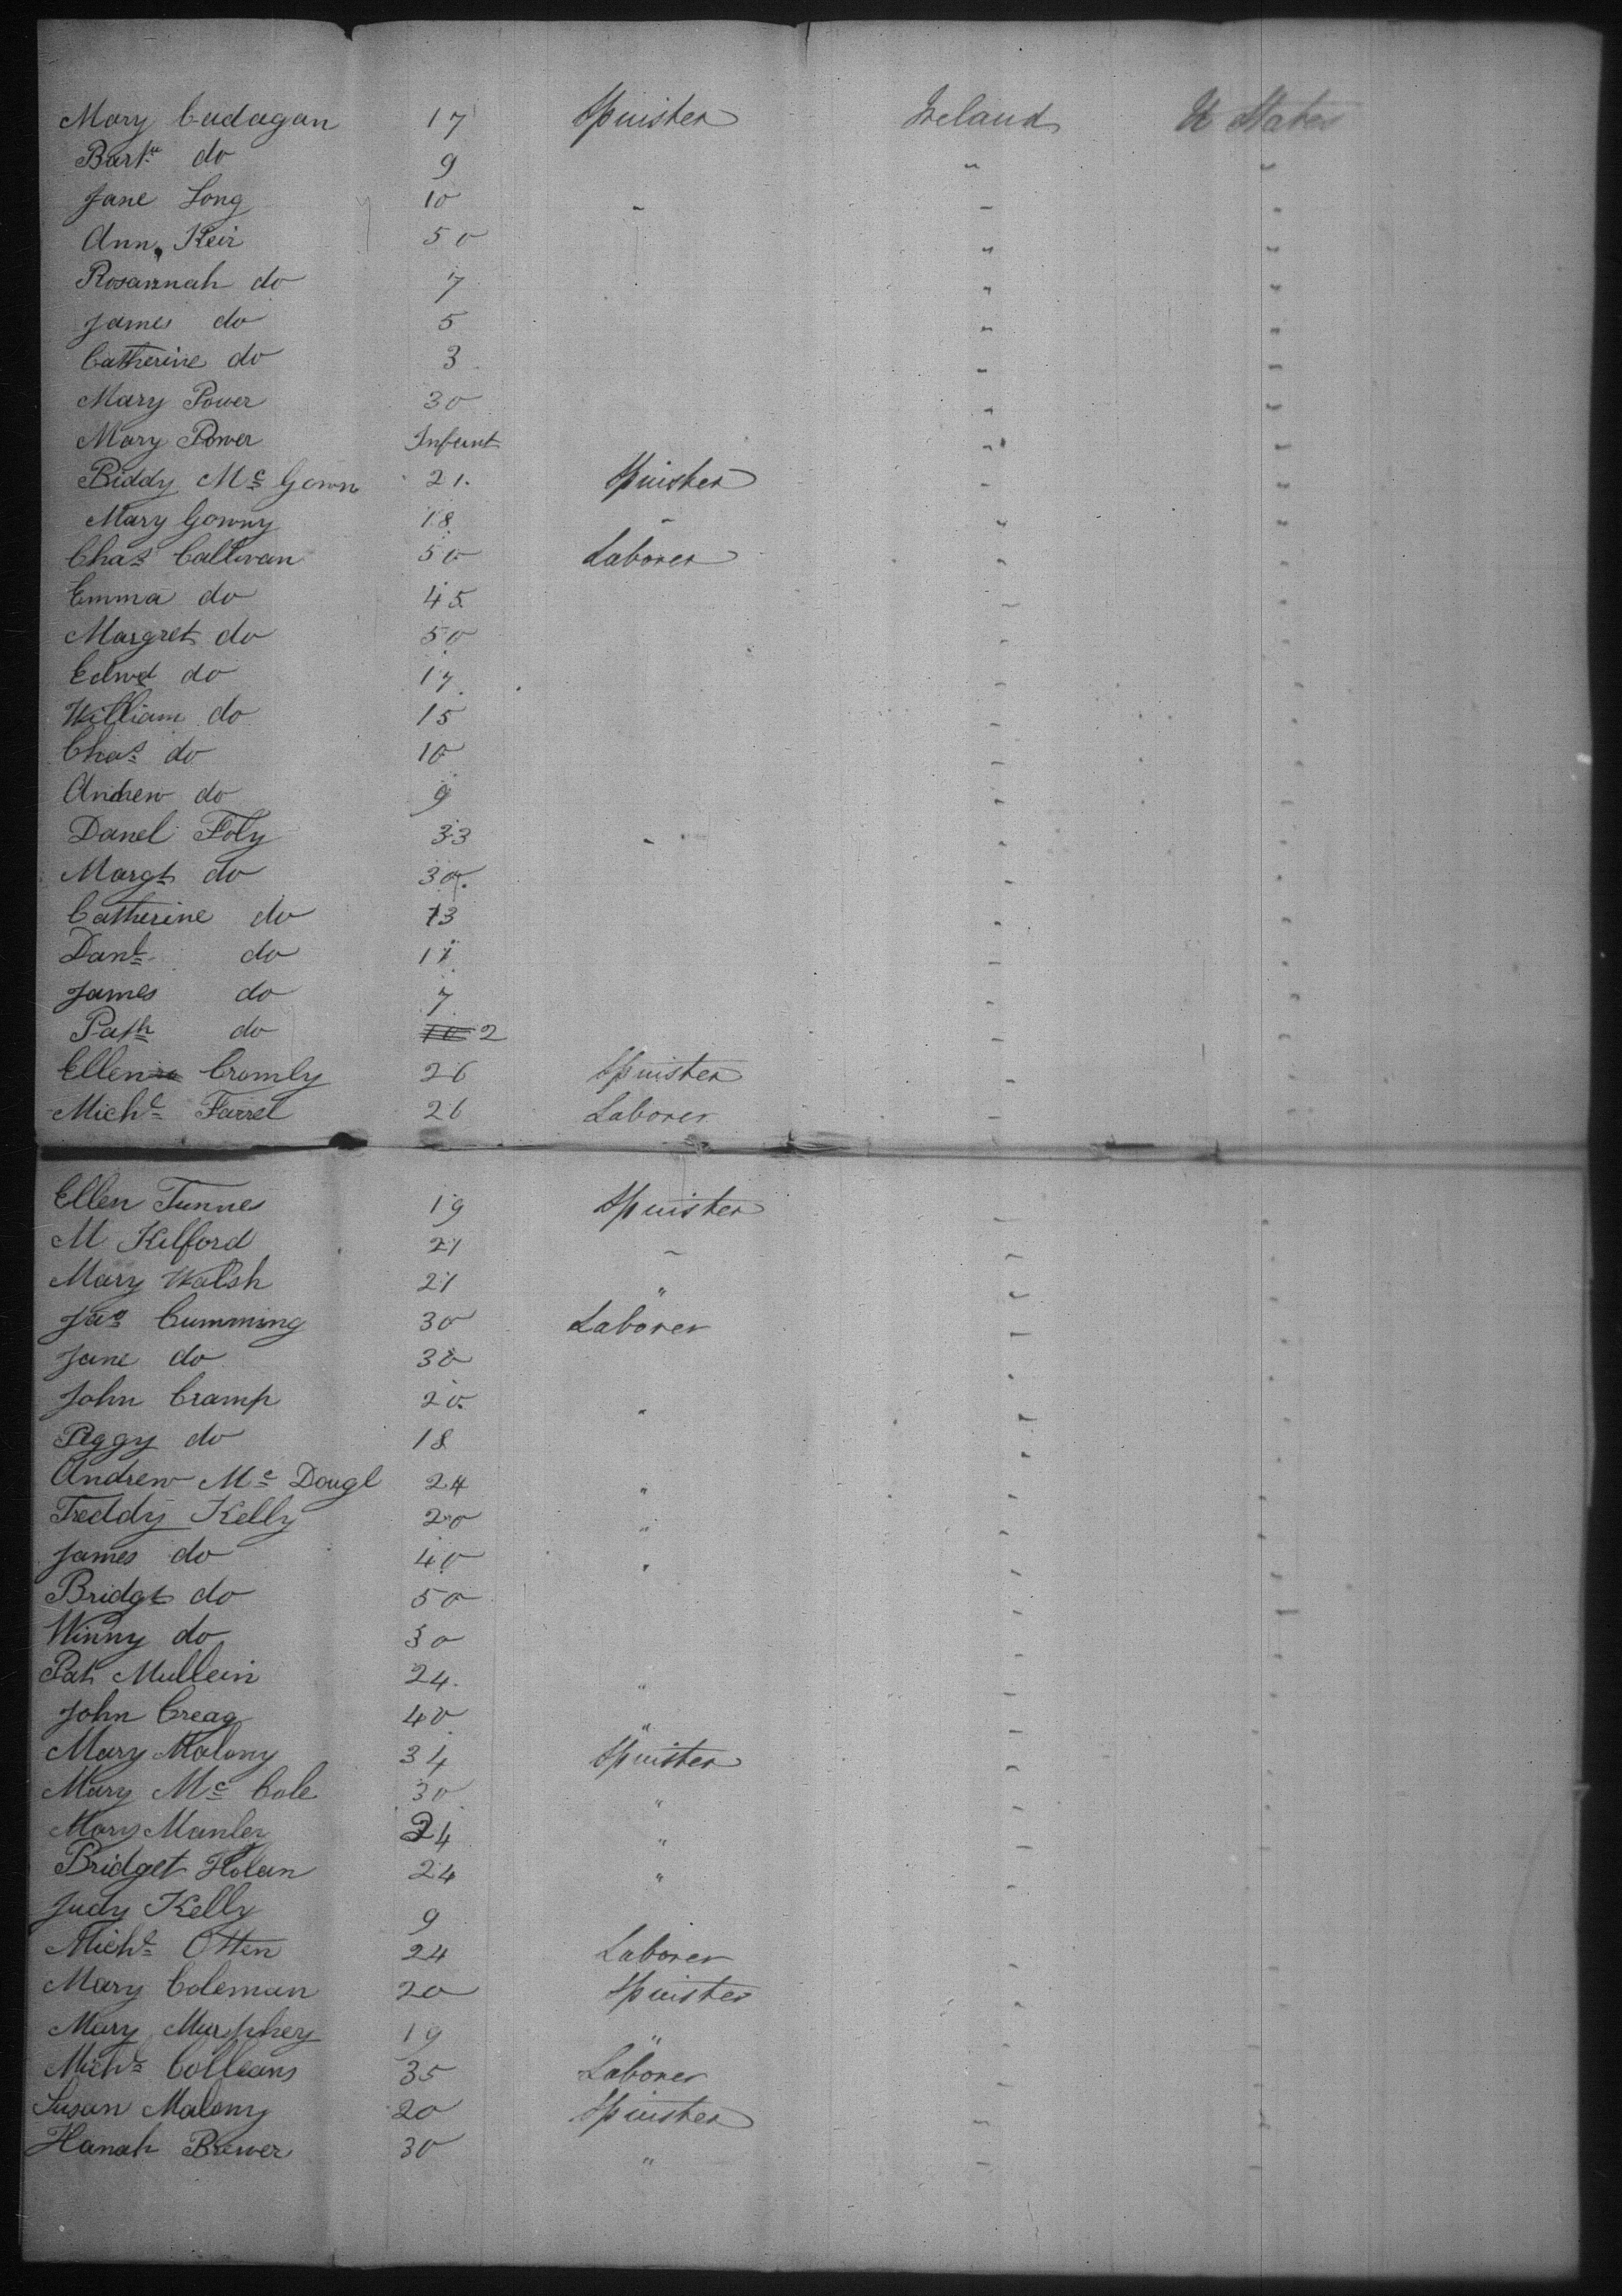 Mary Cadagan 17 Spinster Ireland U States
Bartw do 9 " "
Jane Long 10 " " "
Ann Keir 50 " "
Rosannah do 7 " "
James do 5 " "
Catherine do 3 " "
Mary Power 30 " "
Mary Power Infant " "
Biddy Mc Gown 21 Spinster " "
Mary Gowny 18 " " "
Chas Callivan 50 Laborer " "
Emma do 45 " "
Margret do 50 " "
Edwd do 17 " "
William do 15 " "
Chas do 10 " "
Andrew do 9 " "
Danel Foly 33 " " "
Margt do 30 " "
Catherine do 13 " "
Danl do 11 " "
James do 7 " "
Patk do 2 " "
Ellen Cromly 26 Spinster " "
Michl Farrel 26 Laborer " "
Ellen Tunnes 19 Spinster " "
M Kilford 21 " " "
Mary Walsh 21 " " "
Jas Cumming 30 Laborer " "
Jane do 30 " "
John Cramp 20 " " "
Peggy do 18 " "
Andrew Mc Dougl 24 " " "
Treddy Kelly 20 " " "
James do 40 " " "
Bridgt do 50 " "
Winny do 30 " "
Pat Mullein 24 " " "
John Creag 40 " " "
Mary Malony 34 Spinster " "
Mary Mc Cole 30 " " "
Mary Manley 24 " " "
Bridget Holan 24 " " "
Judy Kelly 9
Michl Otten 24 Laborer " "
Mary Coleman 20 Spinster " "
Mary Murphey 19 " " "
Michl Colleans 35 Laborer " "
Susan Malony 20 Spinster " "
Hanah Brewer 30 " " "